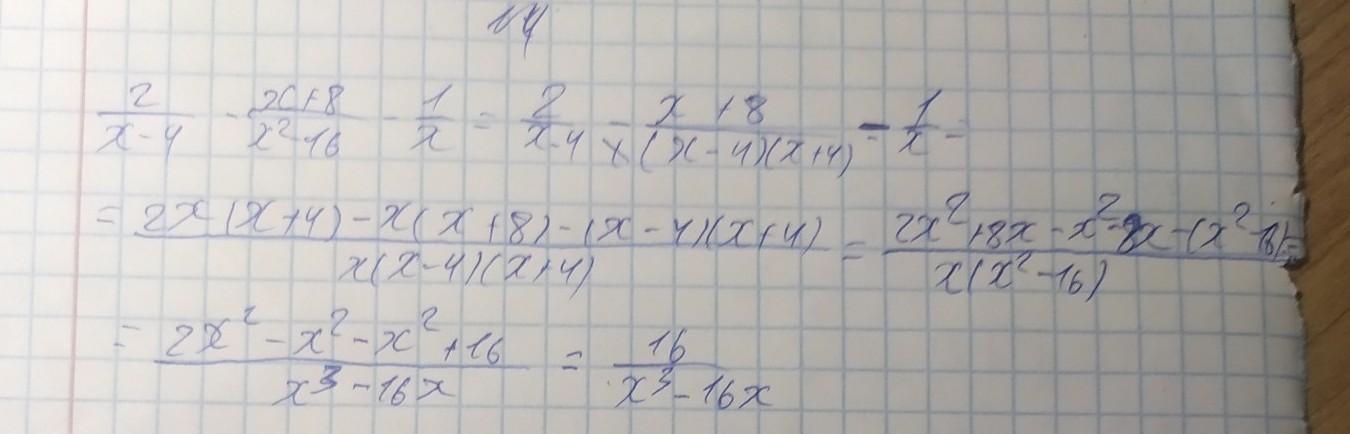 №4
2/(x-4) - (x+8)/(x²-16) - 1/x = 2/(x-4) - (x+8)/((x-4)(x+4)) - 1/x =
= (2x(x+4)-x(x+8)-(x-4)(x+4))/(x(x-4)(x+4)) = (2x²+8x-x²-8x-(x²-16))/(x(x²-16)) =
= (2x²-x²-x²+16)/(x³-16x) = 16/(x³-16x)